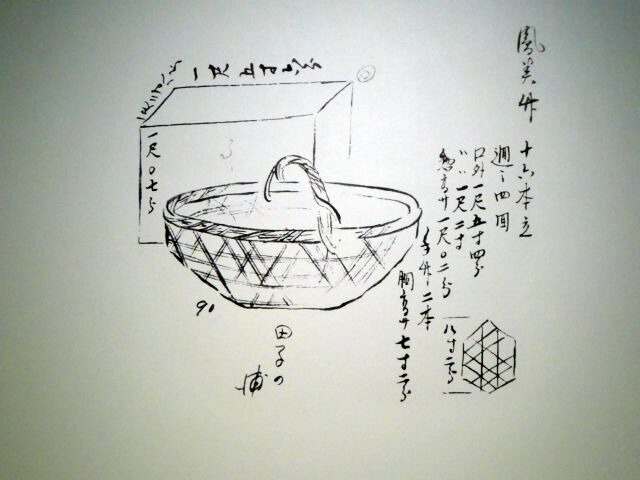 鳳美竹 十六本立
週シ四回
口外一尺五寸四分
〃〃一尺二寸
惣高サ一尺〇二分
手竹二本
胴高サ七寸二分
八寸二分
一尺五寸
一尺〇七分
90
田子の
浦